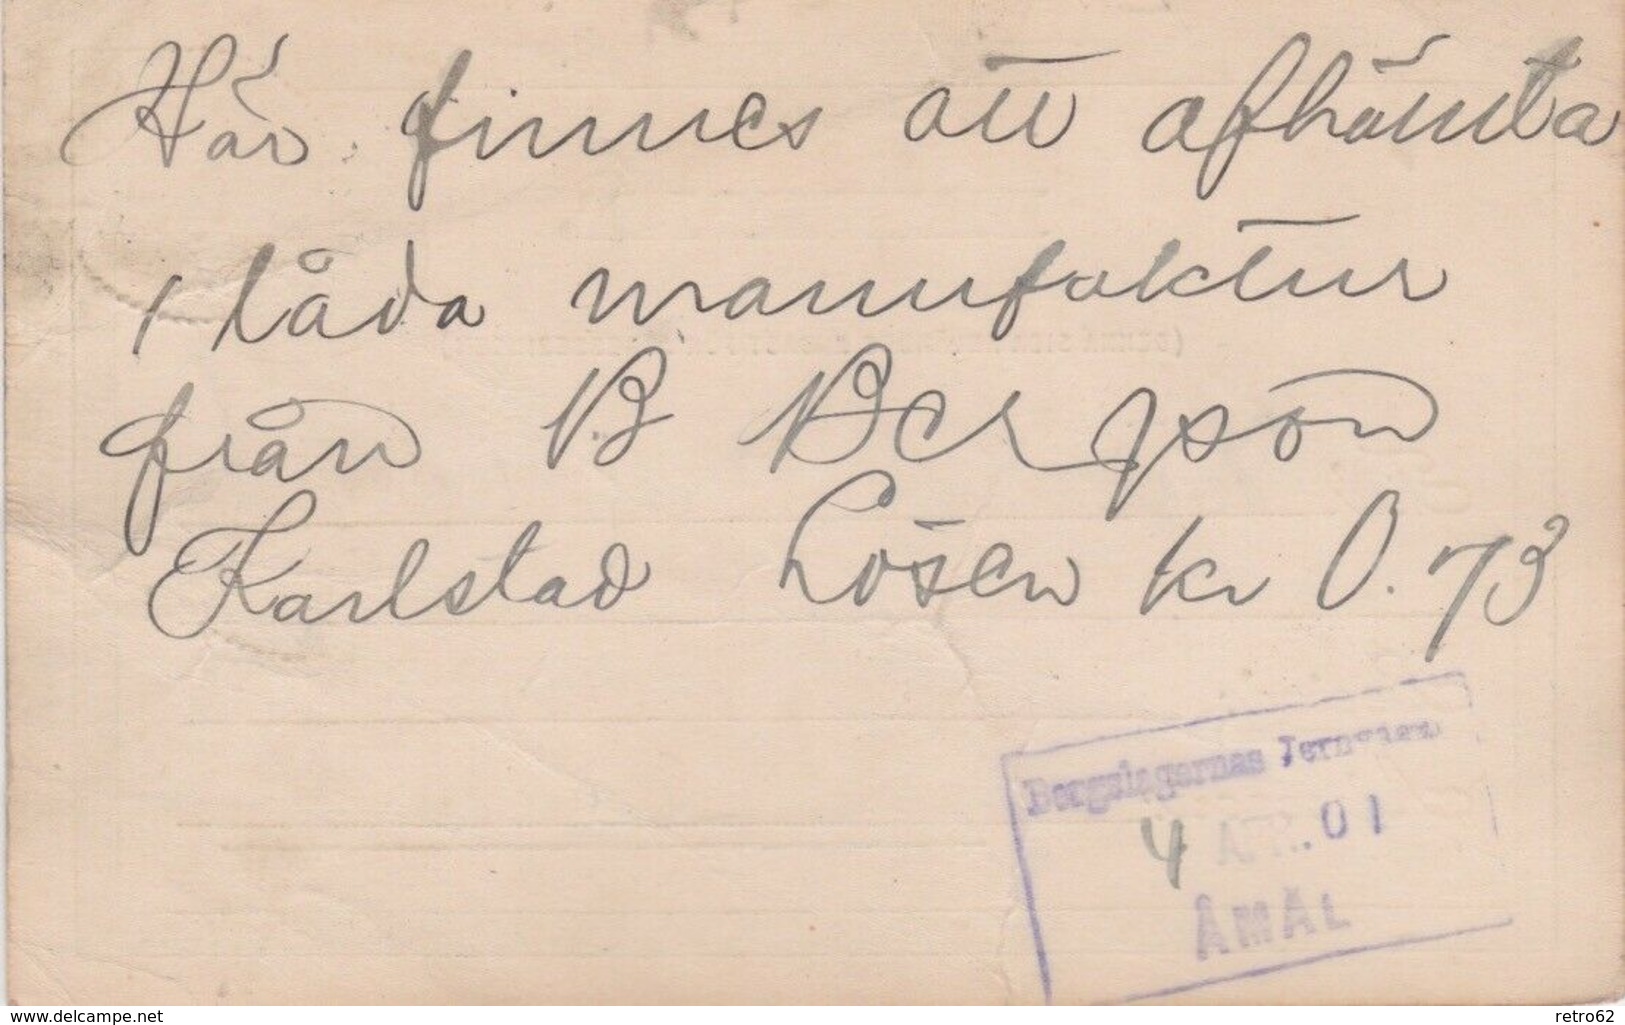 Här finnes att afhämta
1 låda manufaktur
från B Bergson
Karlstad Lösen kr 0.73
Bergslagernas Jernvägar
4 APR. 01
ÅMÅL
www.delcampe.net
retro62